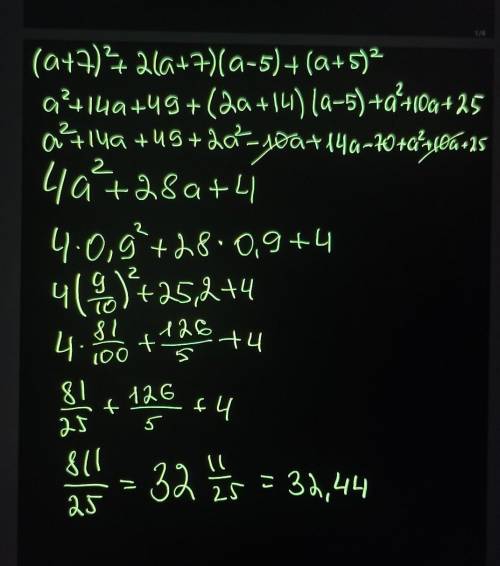 (a+7)²+2(a+7)(a-5)+(a+5)²
a²+14a+49+(2a+14)(a-5)+a²+10a+25
a²+14a+49+2a²-10a+14a-70+a²+10a+25
4a²+28a+4
4·0,9²+28·0,9+4
4(9/10)²+25,2+4
4·81/100+126/5+4
81/25+126/5+4
811/25=32 11/25=32,44